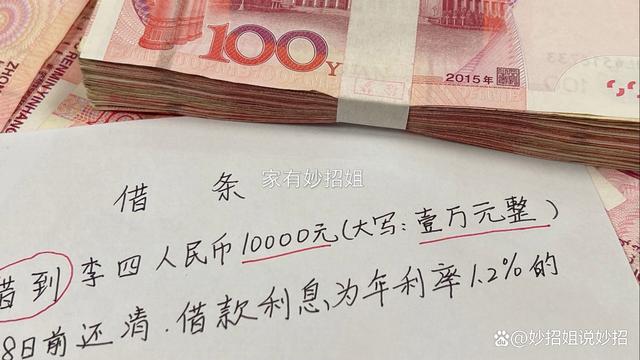 100
2015年
家有妙招姐
借 条
借到李四人民币10000元(大写:壹万元整)
8日前还清.借款利息为年利率1.2%的
妙招姐说妙招